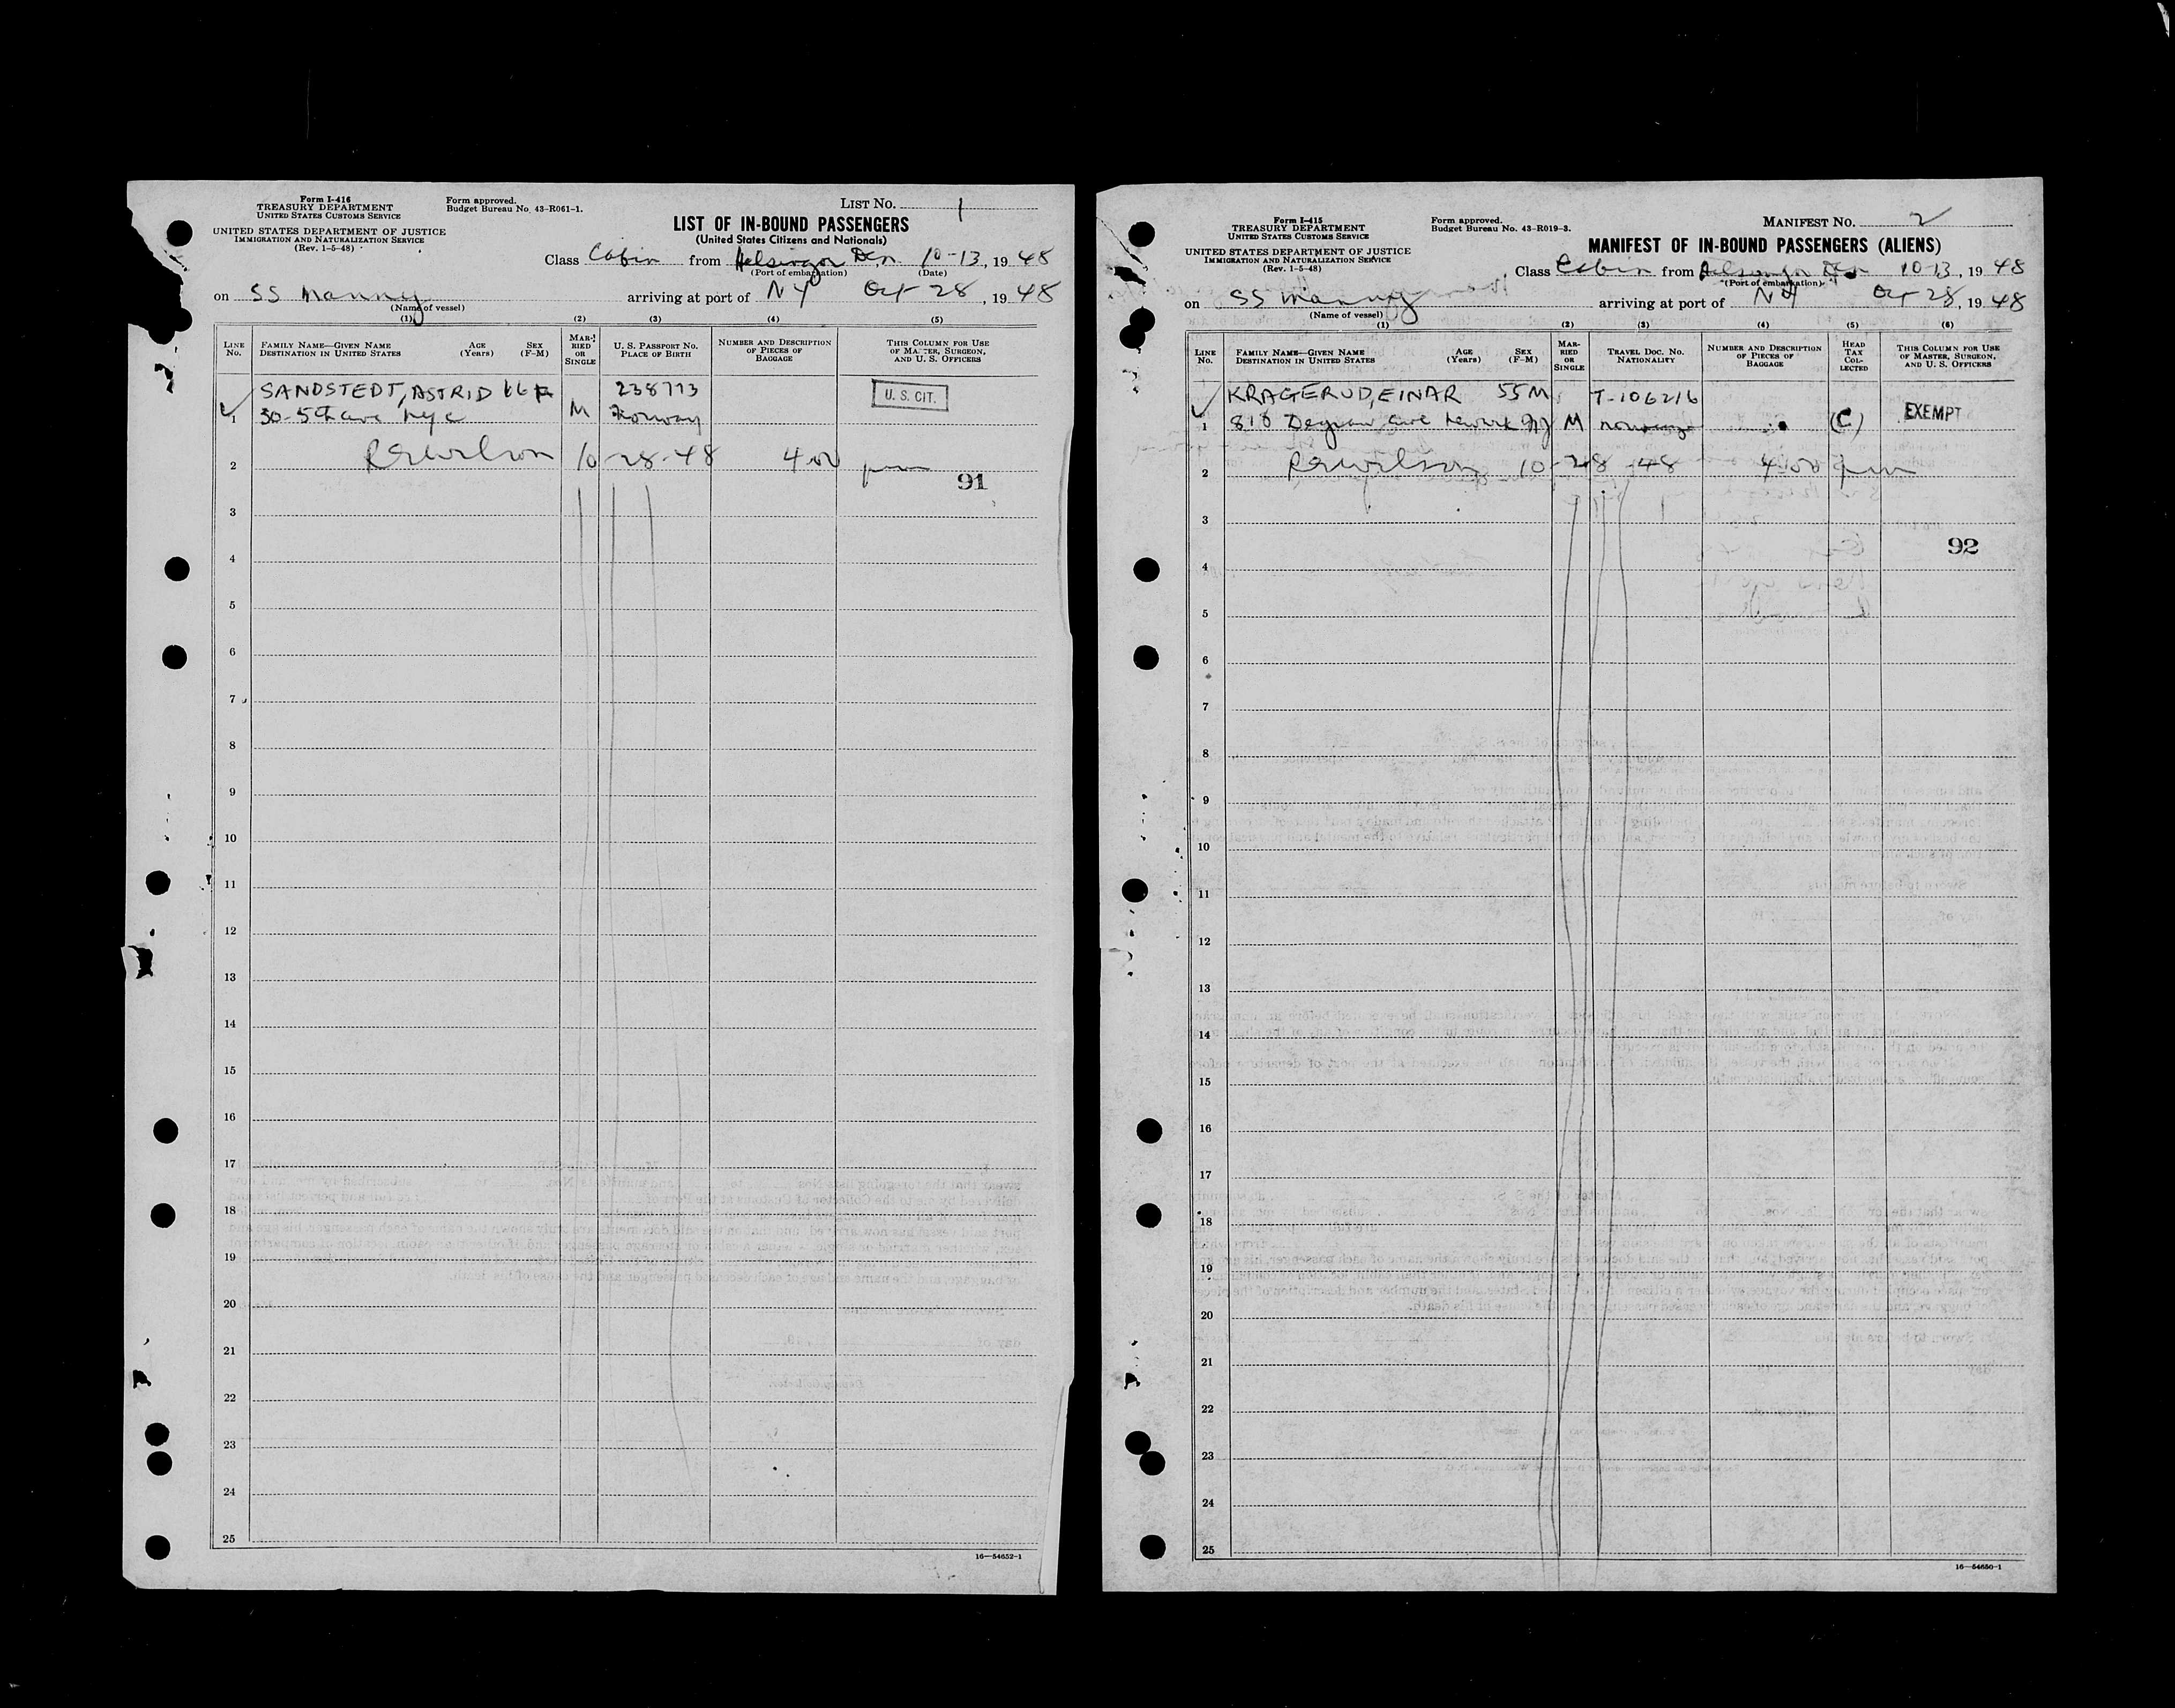 Form I-416
TREASURY DEPARTMENT
UNITED STATES CUSTOMS SERVICE
UNITED STATES DEPARTMENT OF JUSTICE
IMMIGRATION AND NATURALIZATION SERVICE
(Rev. 1-5-48)
Form approved.
Budget Bureau No. 43-R061-1.
LIST NO. 1
LIST OF IN-BOUND PASSENGERS
(United States Citizens and Nationals)
Class Cabin from Helsingor Den. 10-13, 19 48
(Port of embarkation) (Date)
on SS arriving at port of NY Oct 28, 19 48
(Name of vessel)
(1) (2) (3) (4) (5)
LINE NO.
FAMILY NAME—GIVEN NAME DESTINATION IN UNITED STATES
AGE (Years)
SEX (F-M)
MARRIED OR SINGLE
U. S. PASSPORT NO. PLACE OF BIRTH
NUMBER AND DESCRIPTION OF PIECES OF BAGGAGE
THIS COLUMN FOR USE OF MASTER, SURGEON, AND U. S. OFFICERS
SANDSTEDT, ASTRID 66 F 238773 U. S. CIT.
1 30-5th ave nyc M Norway
2 10-28-48 4 00 pm
91
3
4
5
6
7
8
9
10
11
12
13
14
15
16
17
18
19
20
21
22
23
24
25
16—54652-1
Form I-415
TREASURY DEPARTMENT
UNITED STATES CUSTOMS SERVICE
UNITED STATES DEPARTMENT OF JUSTICE
IMMIGRATION AND NATURALIZATION SERVICE
(Rev. 1-5-48)
Form approved.
Budget Bureau No. 43-R019-3.
MANIFEST NO. 2
MANIFEST OF IN-BOUND PASSENGERS (ALIENS)
Class Cabin from Helsingor Den 10-13, 19 48
(Port of embarkation)
on SS arriving at port of NY Oct 28, 19 48
(Name of vessel)
(1) (2) (3) (4) (5) (6)
LINE NO.
FAMILY NAME—GIVEN NAME DESTINATION IN UNITED STATES
AGE (Years)
SEX (F-M)
MARRIED OR SINGLE
TRAVEL DOC. NO. NATIONALITY
NUMBER AND DESCRIPTION OF PIECES OF BAGGAGE
HEAD TAX COLLECTED
THIS COLUMN FOR USE OF MASTER, SURGEON, AND U. S. OFFICERS
KRAGERUD, EINAR 55 M T-106216
1 810 ave NJ M (C) EXEMPT
2 10-28-48 4 00 pm
3
92
4
5
6
7
8
9
10
11
12
13
14
15
16
17
18
19
20
21
22
23
24
25
16—54650-1